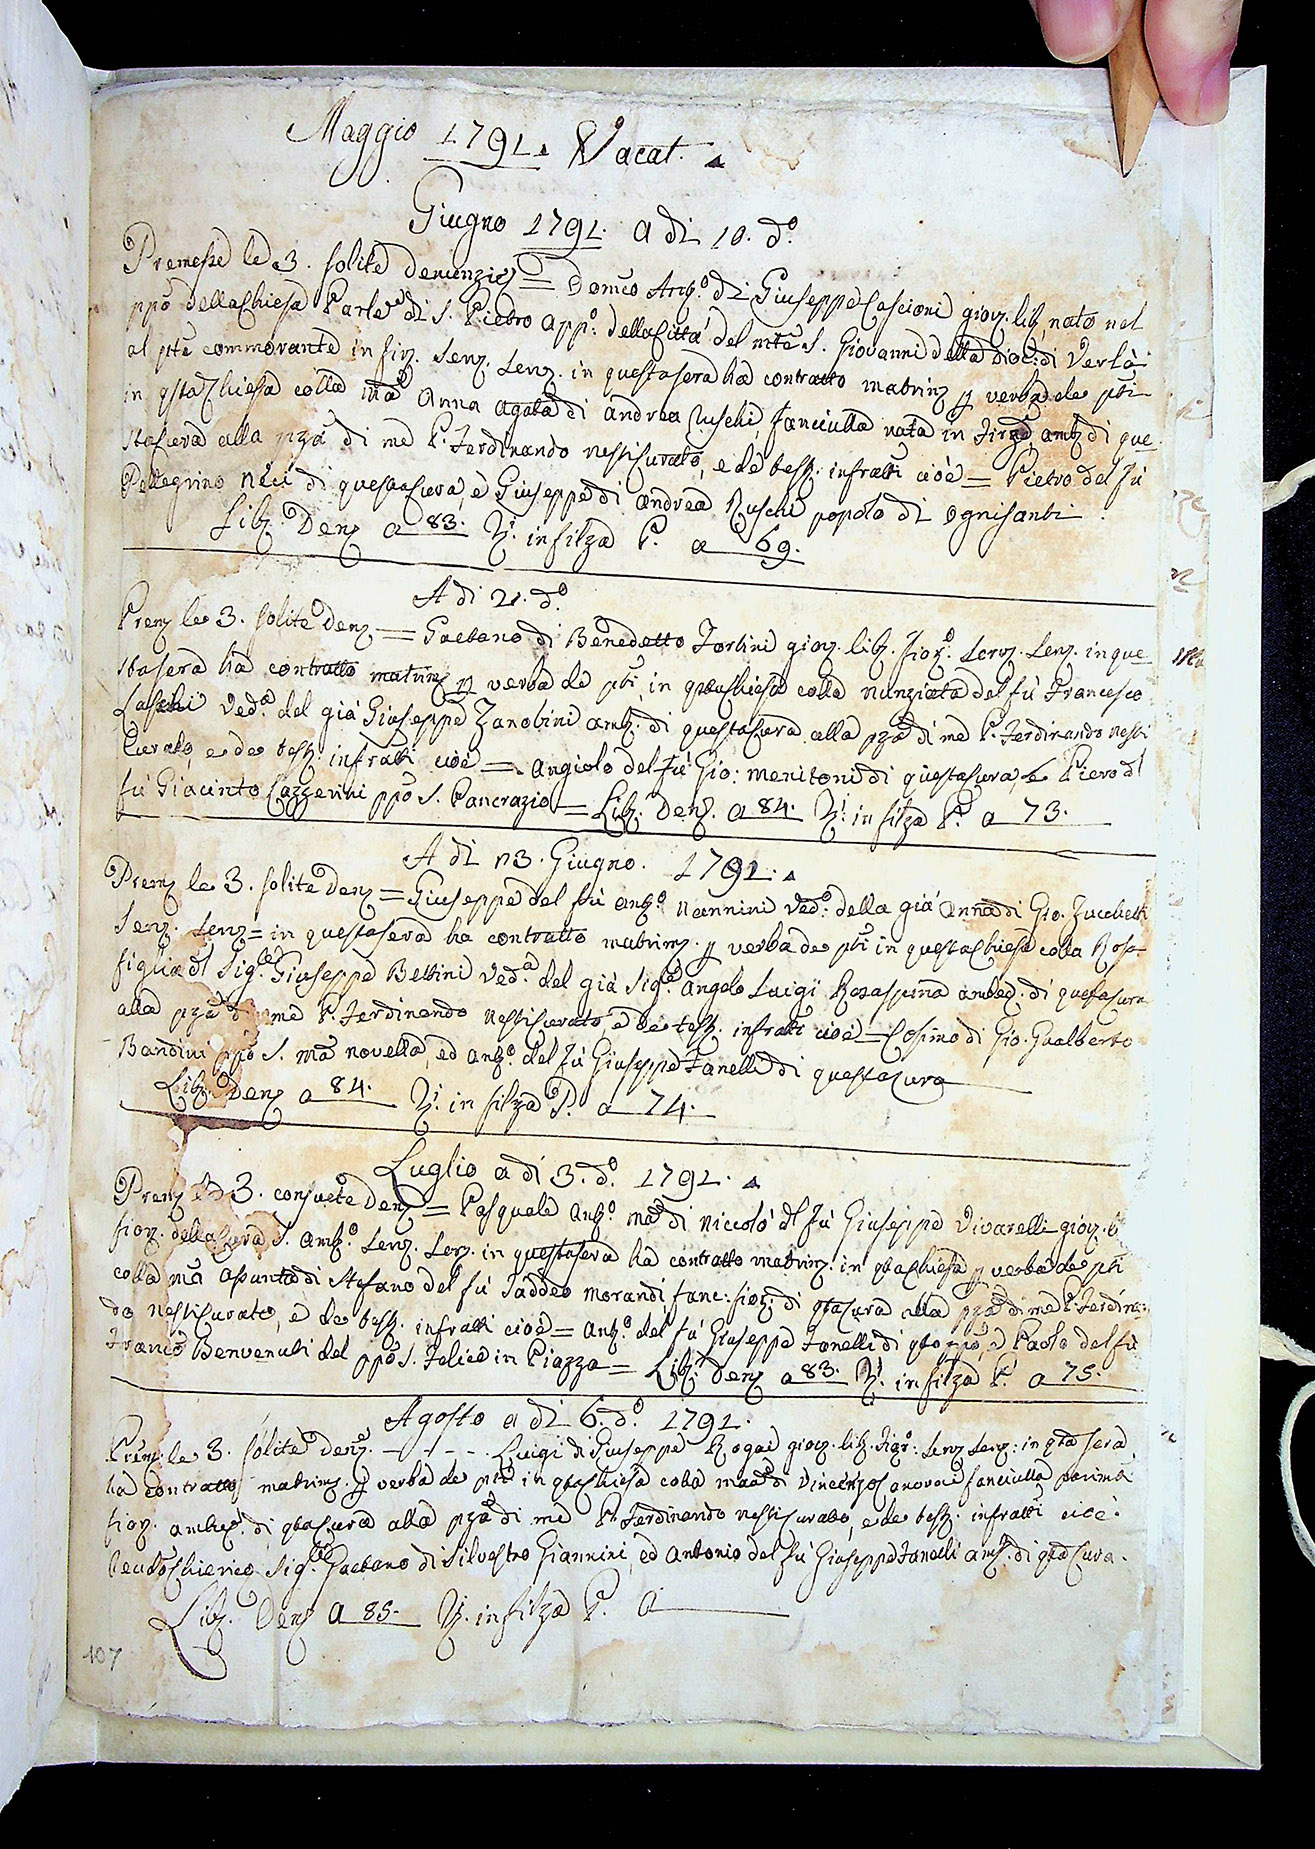 Maggio 1791. Vacat.
Giugno 1791. a di 10. do.
Premesse le 3. solite denunzie = Domco Ang.o di Giuseppe Cascioni giov. lib. nato nel
ppo della Chiesa Parle di S. Pietro app.o della Città del mte S. Giovanni della dioc: di
al pte commorante in fir. Senz. Senz. in questa sera ha contratto matrim. p verba de pti
in qsta Chiesa colla Ma Anna Agata di Andrea Ruschi, fanciulla nata in firze, amb. di que
sta Cura alla pza di me P. Ferdinando Nesti Curato, e de test. infratti cioè = Pietro del fu
Pellegrino Neci di questa Cura, e Giuseppe di Andrea Ruschi popolo di Ognisanti.
Lib. Denz a 83. in filza P. a 69.
A di 21. do.
Prem. le 3. solite denz = Gaetano di Benedetto Fortini giov. lib. fior.o Senz. Senz. in que
sta sera ha contratto matrim p verba de pti in qsta Chiesa colla Nunziata del fu Francesco
Ved.a del già Giuseppe Zanobini amb. di questa Cura alla pza di me P. Ferdinando Nesti
Curato, e de test. infratti cioè = Angiolo del fu Gio: Menitoni di questa Cura, e Piero dl
fu Giacinto Cazzerini ppo S. Pancrazio = Lib. Denz. a 84. in filza P. a 73.
A di 23. Giugno. 1791.
Prem. le 3. solite denz = Giuseppe del fu Ant.o Nannini Ved.o della già Anna di Gio. Zucchetti
Senz. Senz = in questa sera ha contratto matrim. p verba de pti in questa Chiesa colla Rosa
figlia dl Sig.re Giuseppe Bettini Ved.a del già Sig.re Angelo Luigi Rosaspina ambed. di questa Cura
alla pza di me P. Ferdinando Nesti Curato, e de test. infratti cioè = Cosimo di Gio. Gualberto
Bandini ppo S. Ma Novella, ed Ant.o del fu Giuseppe Fanelli di questa Cura
Lib. Denz a 84. in filza P. a 74.
Luglio a di 3. do. 1791.
Prem le 3. consuete denz = Pasquale Ant.o Ma di Niccolò dl fu Giuseppe Vivarelli giov. lib
fior. della Cura S. Amb.o Senz. Senz. in questa sera ha contratto matrim. in qsta Chiesa p verba de pti
colla Ma Assunta di Stefano del fu Taddeo Morandi fanc: fior: di qsta Cura alla pza di me P. Ferdinan:
do Nesti Curato, e de test. infratti cioè = Ant.o del fu Giuseppe Fanelli di qsto ppo, e Paolo del fu
Franco Benvenuti del ppo S. Felice in Piazza = Lib. Denz a 83. in filza P. a 75.
Agosto a di 6. do. 1791.
Prem. le 3. solite denze. - - - - Luigi di Giuseppe Rogai giov. lib. fior.o: Senz. Senz: in qsta sera
ha contratto matrim. p verba de pti in qsta Chiesa colla Madda di Vincenzo Canovai fanciulla parimti
fior. ambed. di qsta Cura alla pza di me P. Ferdinando Nesti Curato, e de test. infratti cioè:
Chierico Sig.re Gaetano di Silvestro Giannini, ed Antonio del fu Giuseppe Fanelli amb. di qsta Cura.
Lib. Denz a 85. in filza P. a
107